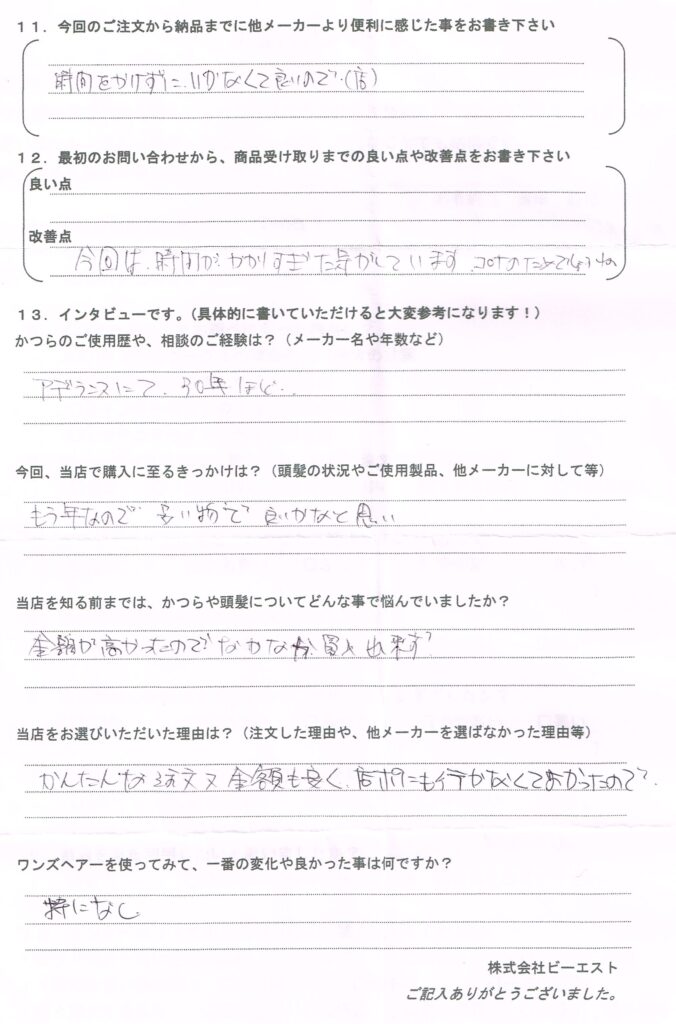 11．今回のご注文から納品までに他メーカーより便利に感じた事をお書き下さい
時間をかけずに、いかなくて良いので、(店)
12．最初のお問い合わせから、商品受け取りまでの良い点や改善点をお書き下さい
良い点
改善点
今回は、時間が、かかりすぎた気がしています、コロナのためでしょうね
13．インタビューです。（具体的に書いていただけると大変参考になります！）
かつらのご使用歴や、相談のご経験は？（メーカー名や年数など）
アデランスにて、30年ほど、
今回、当店で購入に至るきっかけは？（頭髪の状況やご使用製品、他メーカーに対して等）
もう年なので 安い物で 良いかなと思い
当店を知る前までは、かつらや頭髪についてどんな事で悩んでいましたか？
金額が高かったので なかなか 買え 出来ず
当店をお選びいただいた理由は？（注文した理由や、他メーカーを選ばなかった理由等）
かんたんな注文又金額も安く、店ポにも行かなくてよかったので、
ワンズヘアーを使ってみて、一番の変化や良かった事は何ですか？
特になし
株式会社ビーエスト
ご記入ありがとうございました。